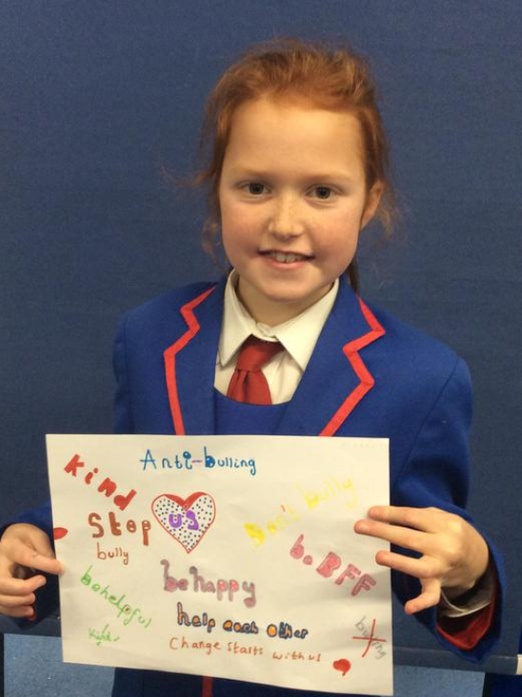 Anti-bulling
kind
Don't bully
us
Stop
bully
b. BFF
be happy
be helpful
help each other
Change starts with us